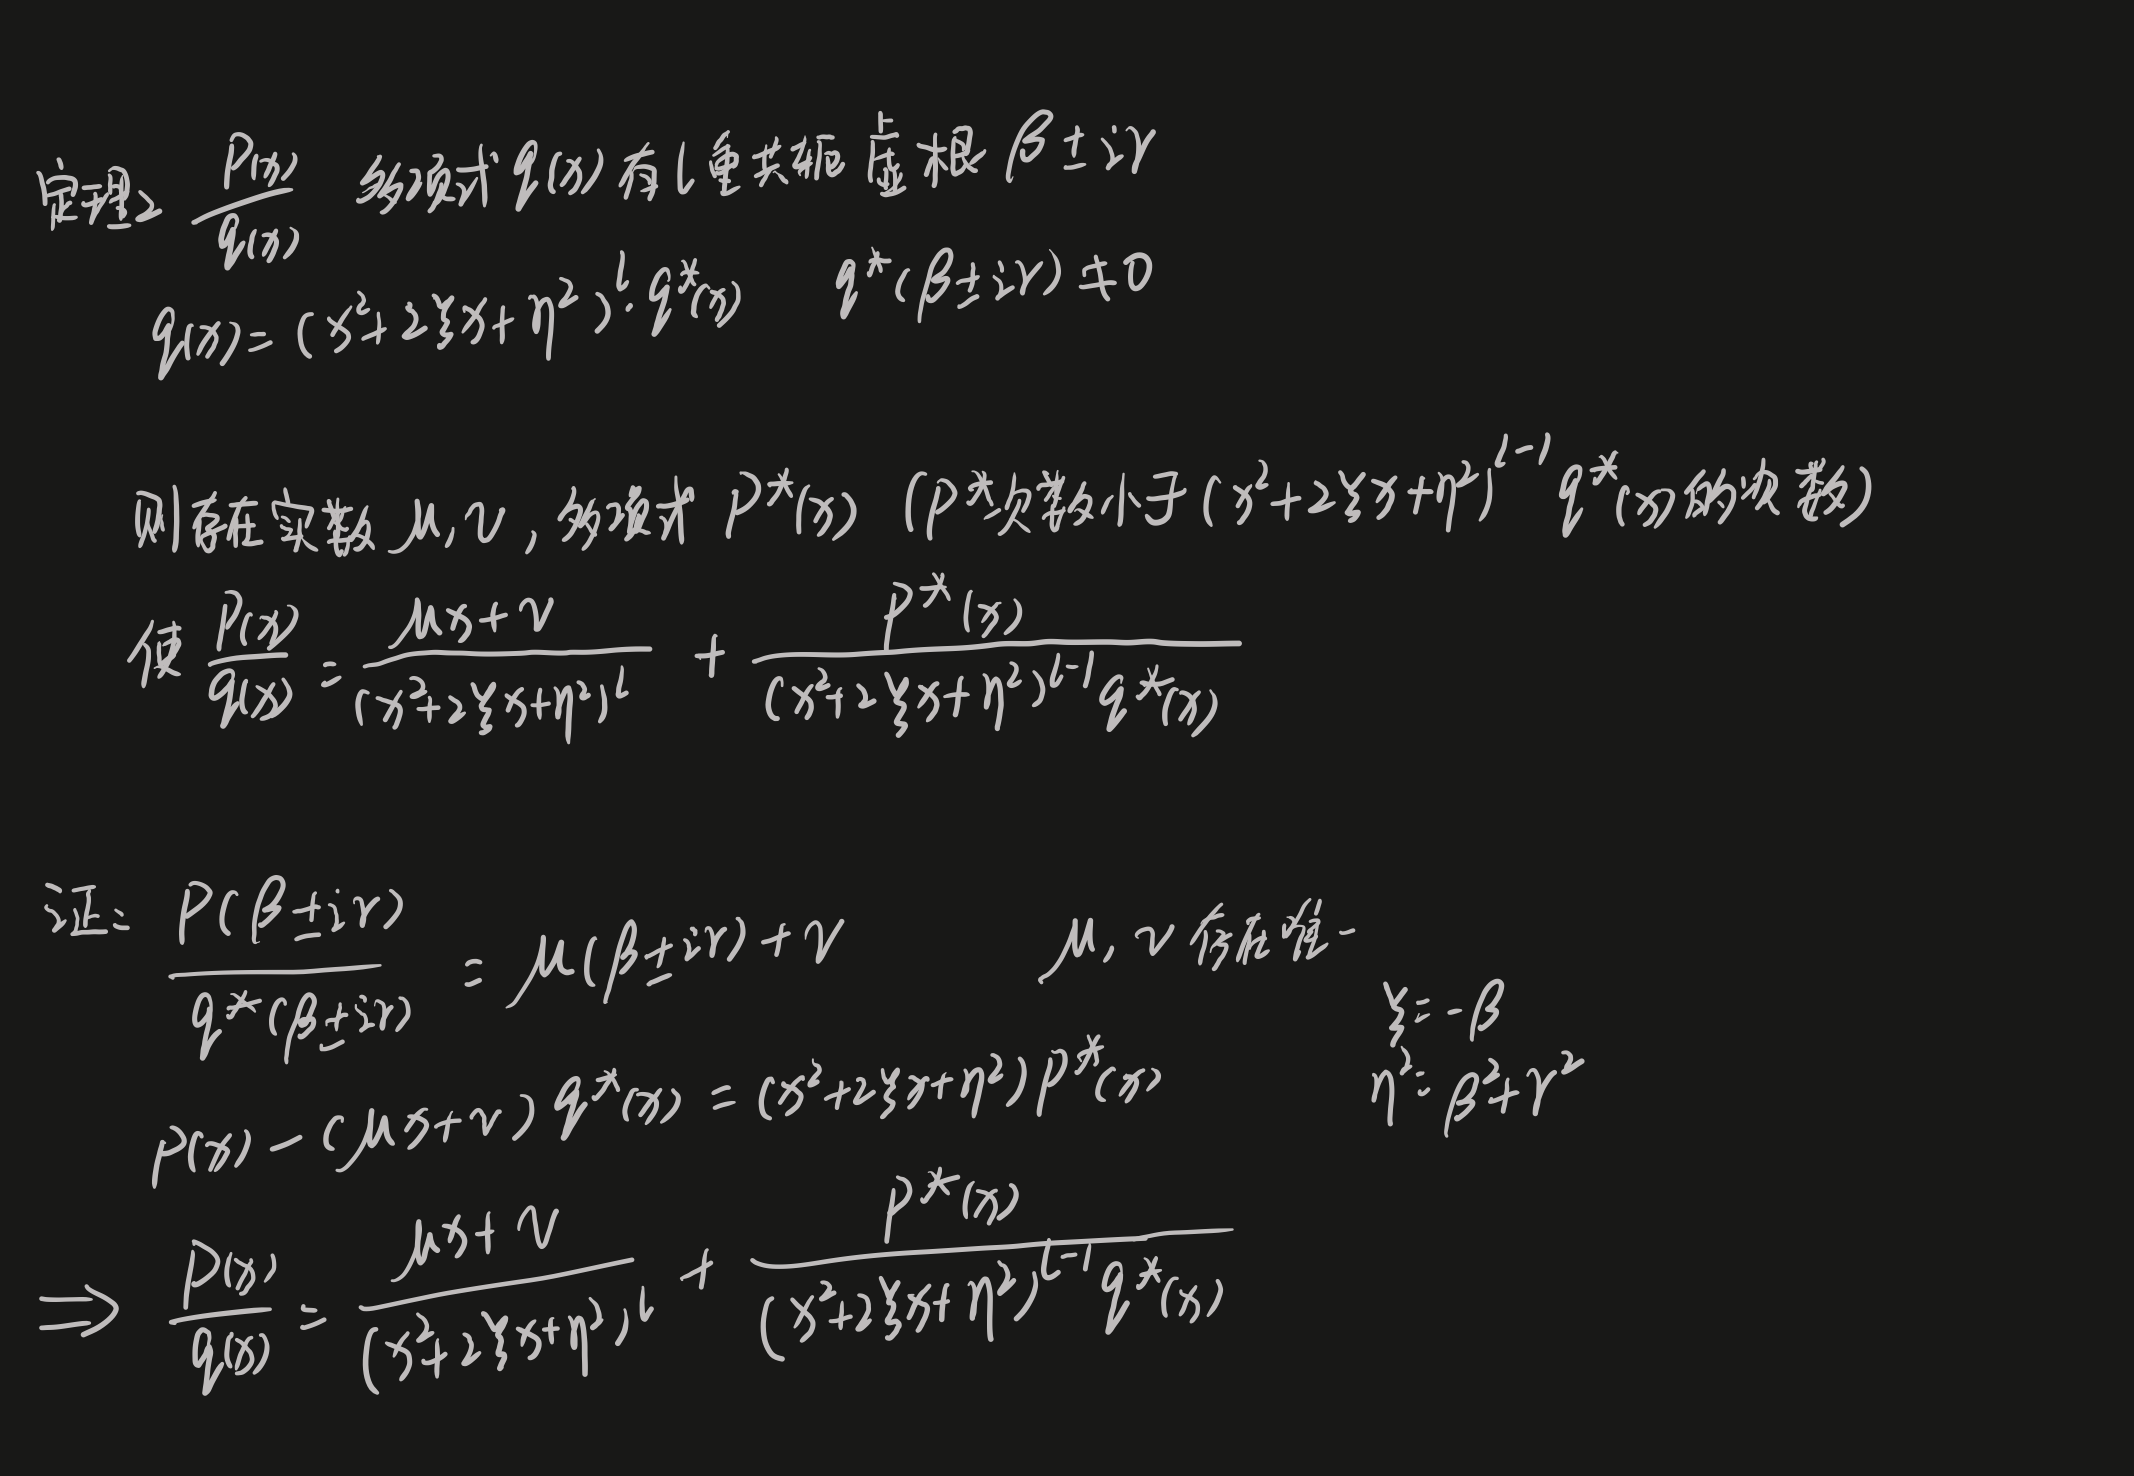 定理2 p(x)/q(x) 多项式 q(x) 有 l 重共轭虚根 β±iγ
q(x)=(x²+2ξx+η²)^l·q*(x) q*(β±iγ)≠0
则存在实数 μ,ν,多项式 p*(x) (p*次数小于(x²+2ξx+η²)^(l-1) q*(x)的次数)
使 p(x)/q(x) = (μx+ν)/(x²+2ξx+η²)^l + p*(x)/((x²+2ξx+η²)^(l-1) q*(x))
证: p(β±iγ)/q*(β±iγ) = μ(β±iγ)+ν μ,ν 存在唯一
ξ=-β
p(x)-(μx+ν)q*(x)=(x²+2ξx+η²)p*(x) η²=β²+γ²
⇒ p(x)/q(x) = (μx+ν)/(x²+2ξx+η²)^l + p*(x)/((x²+2ξx+η²)^(l-1) q*(x))